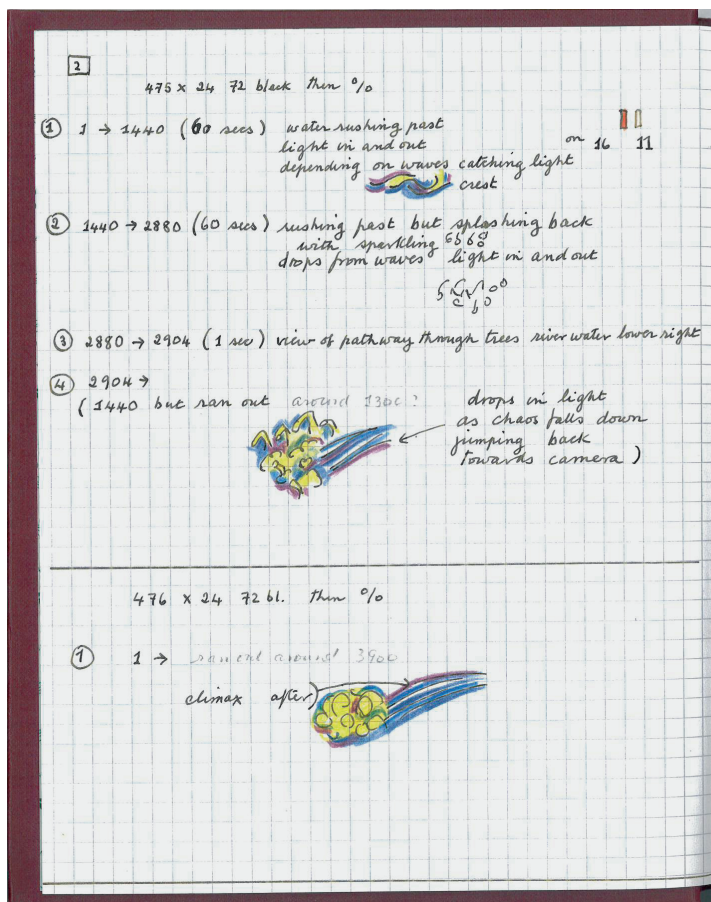 2
475 x 24 72 black then %
① 1 → 1440 (60 secs) water rushing past
light in and out on 16 11
depending on waves catching light
crest
② 1440 → 2880 (60 secs) rushing past but splashing back
with sparkling
drops from waves light in and out
③ 2880 → 2904 (1 sec) view of pathway through trees river water lower right
④ 2904 →
(1440 but ran out around 1300? drops in light
as chaos falls down
jumping back
towards camera)
476 x 24 72 bl. then %
① 1 → ran out around 3900
climax after)